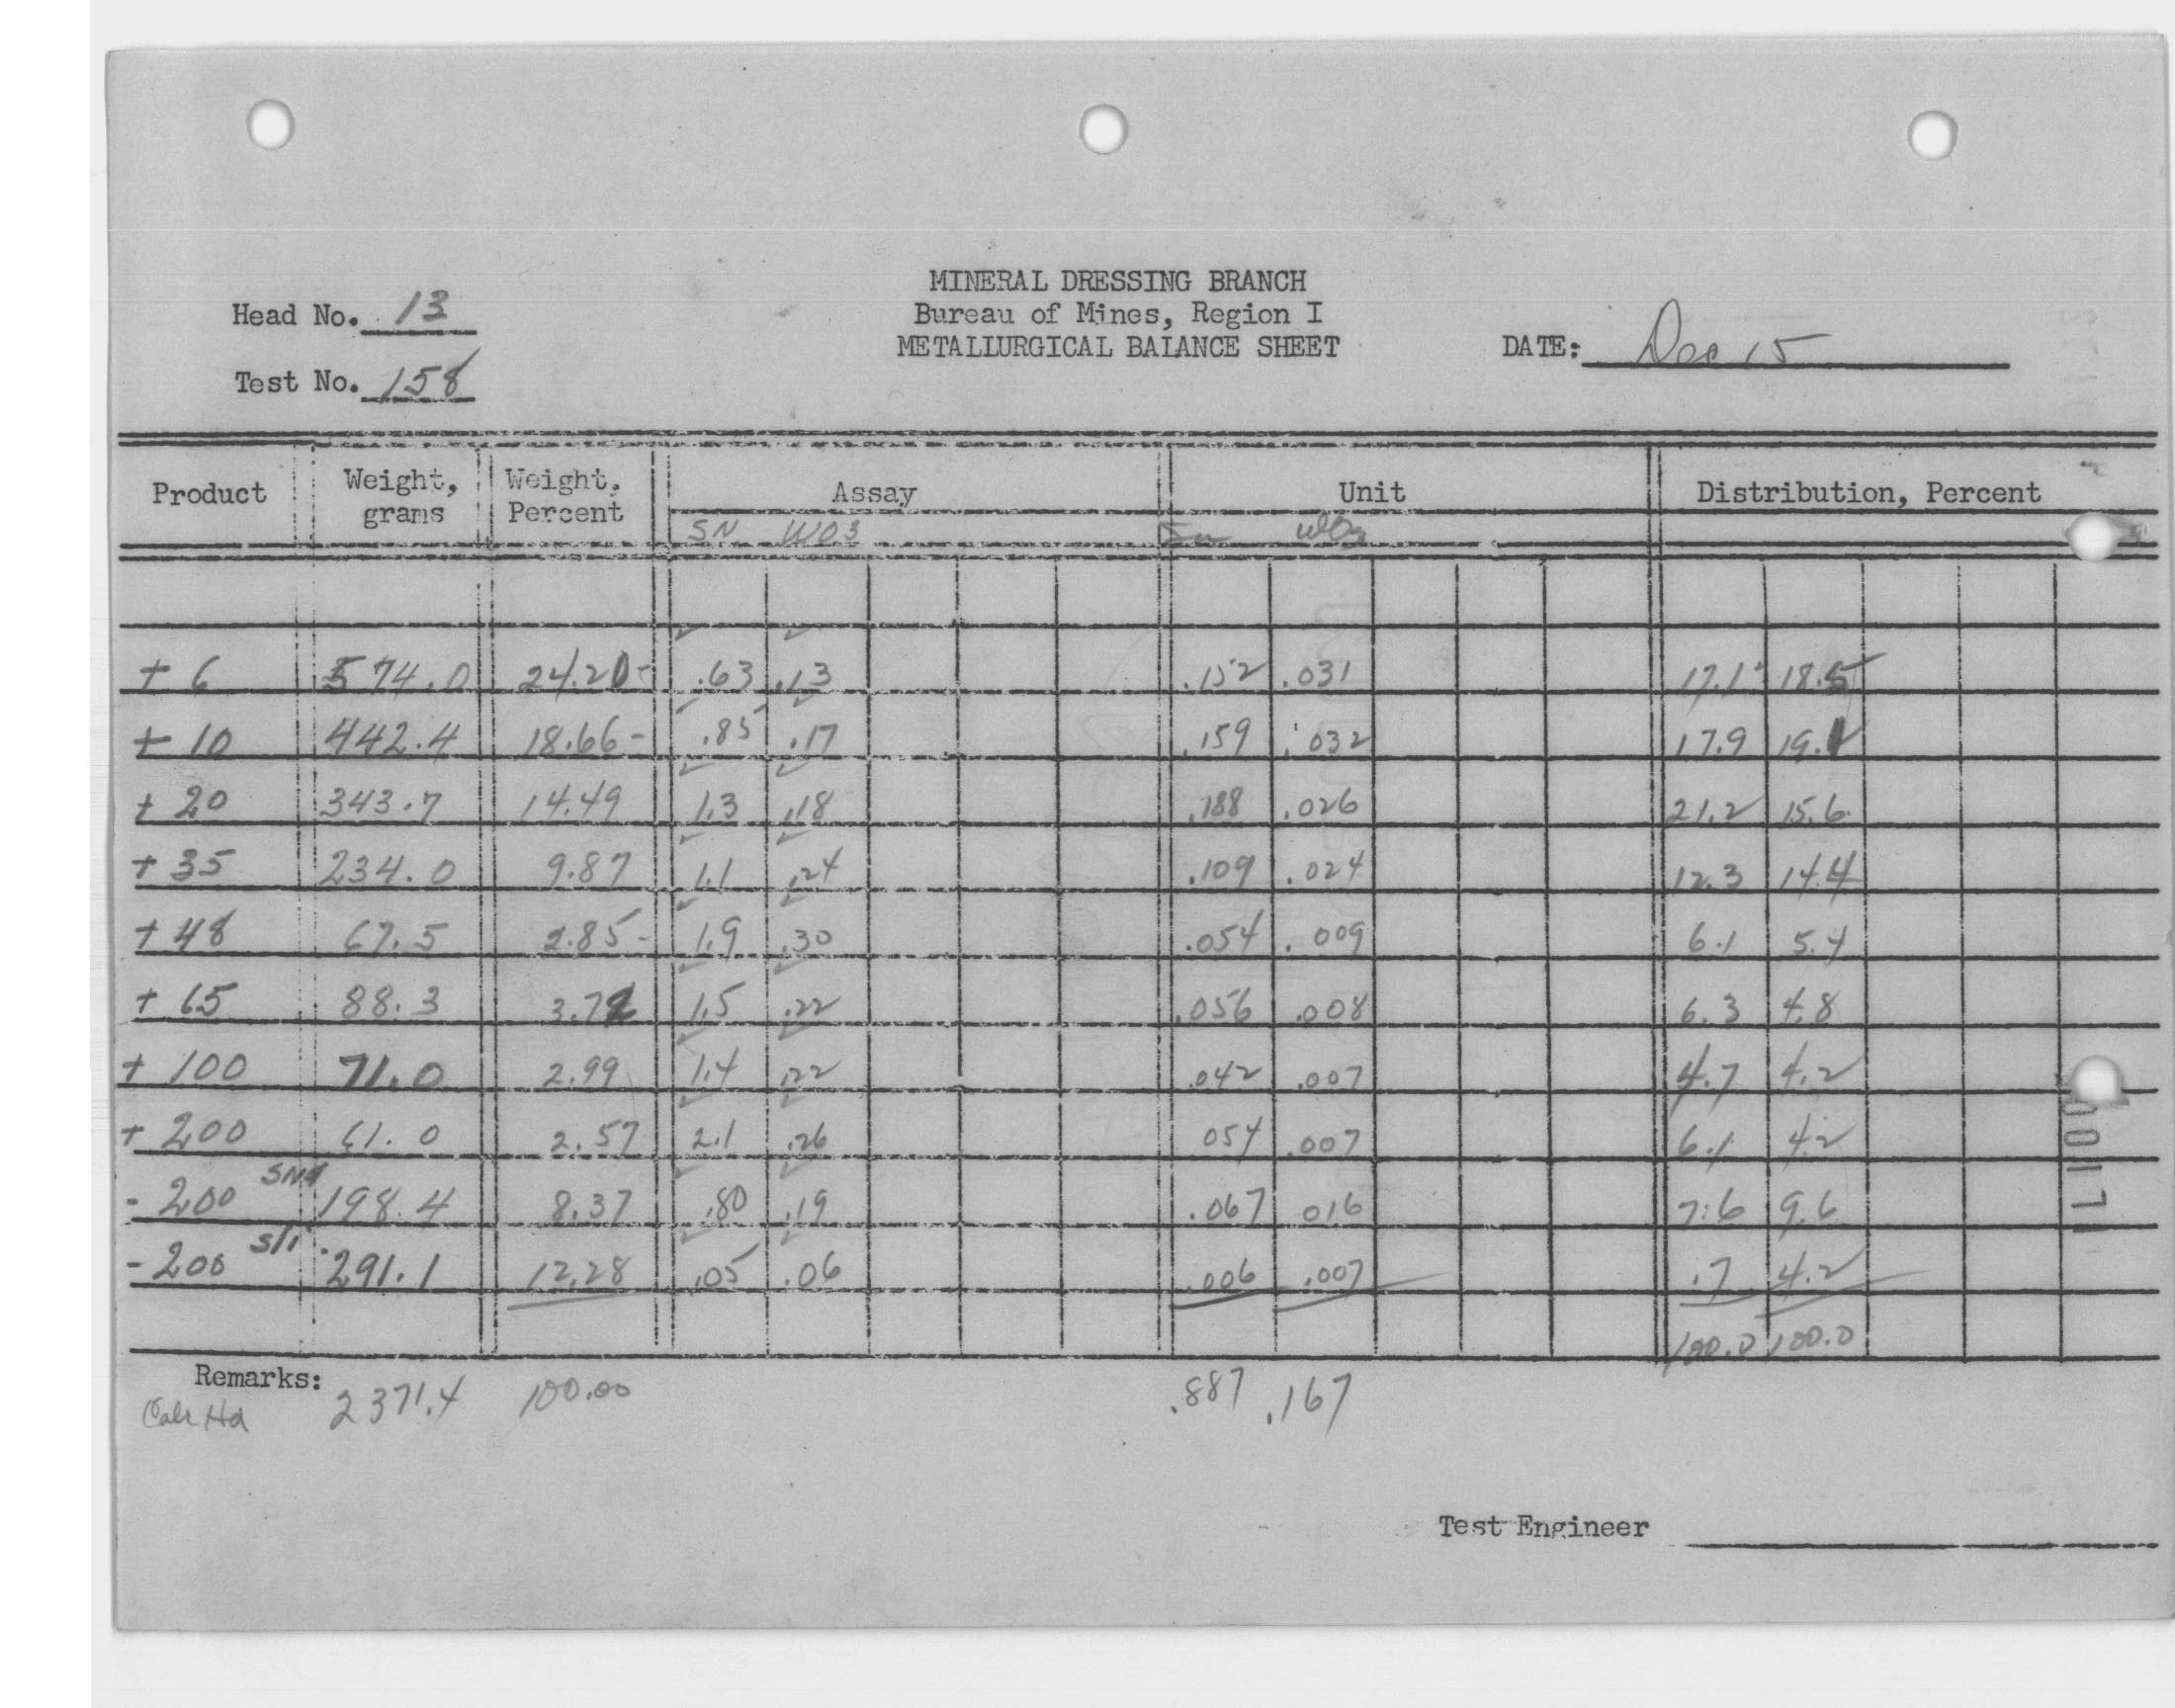 MINERAL DRESSING BRANCH
Head No. 13 Bureau of Mines, Region I
METALLURGICAL BALANCE SHEET DATE: Dec 15
Test No. 158
Product Weight, grams Weight, Percent Assay Unit Distribution, Percent
SN WO3 Sn WO3
+ 6 574.0 24.20 .63 .13 .152 .031 17.1 18.5
+ 10 442.4 18.66 .85 .17 .159 .032 17.9 19.1
+ 20 343.7 14.49 1.3 .18 .188 .026 21.2 15.6
+ 35 234.0 9.87 1.1 .24 .109 .024 12.3 14.4
+ 48 67.5 2.85 1.9 .30 .054 .009 6.1 5.4
+ 65 88.3 3.72 1.5 .22 .056 .008 6.3 4.8
+ 100 71.0 2.99 1.4 .22 .042 .007 4.7 4.2
+ 200 61.0 2.57 2.1 .26 054 .007 6.1 4.2
- 200 SN 198.4 8.37 .80 .19 .067 016 7.6 9.6
- 200 sli 291.1 12.28 .05 .06 .006 .007 .7 4.2
100.0 100.0
Remarks:
Calc Hd 2371.4 100.00 .887 .167
Test Engineer